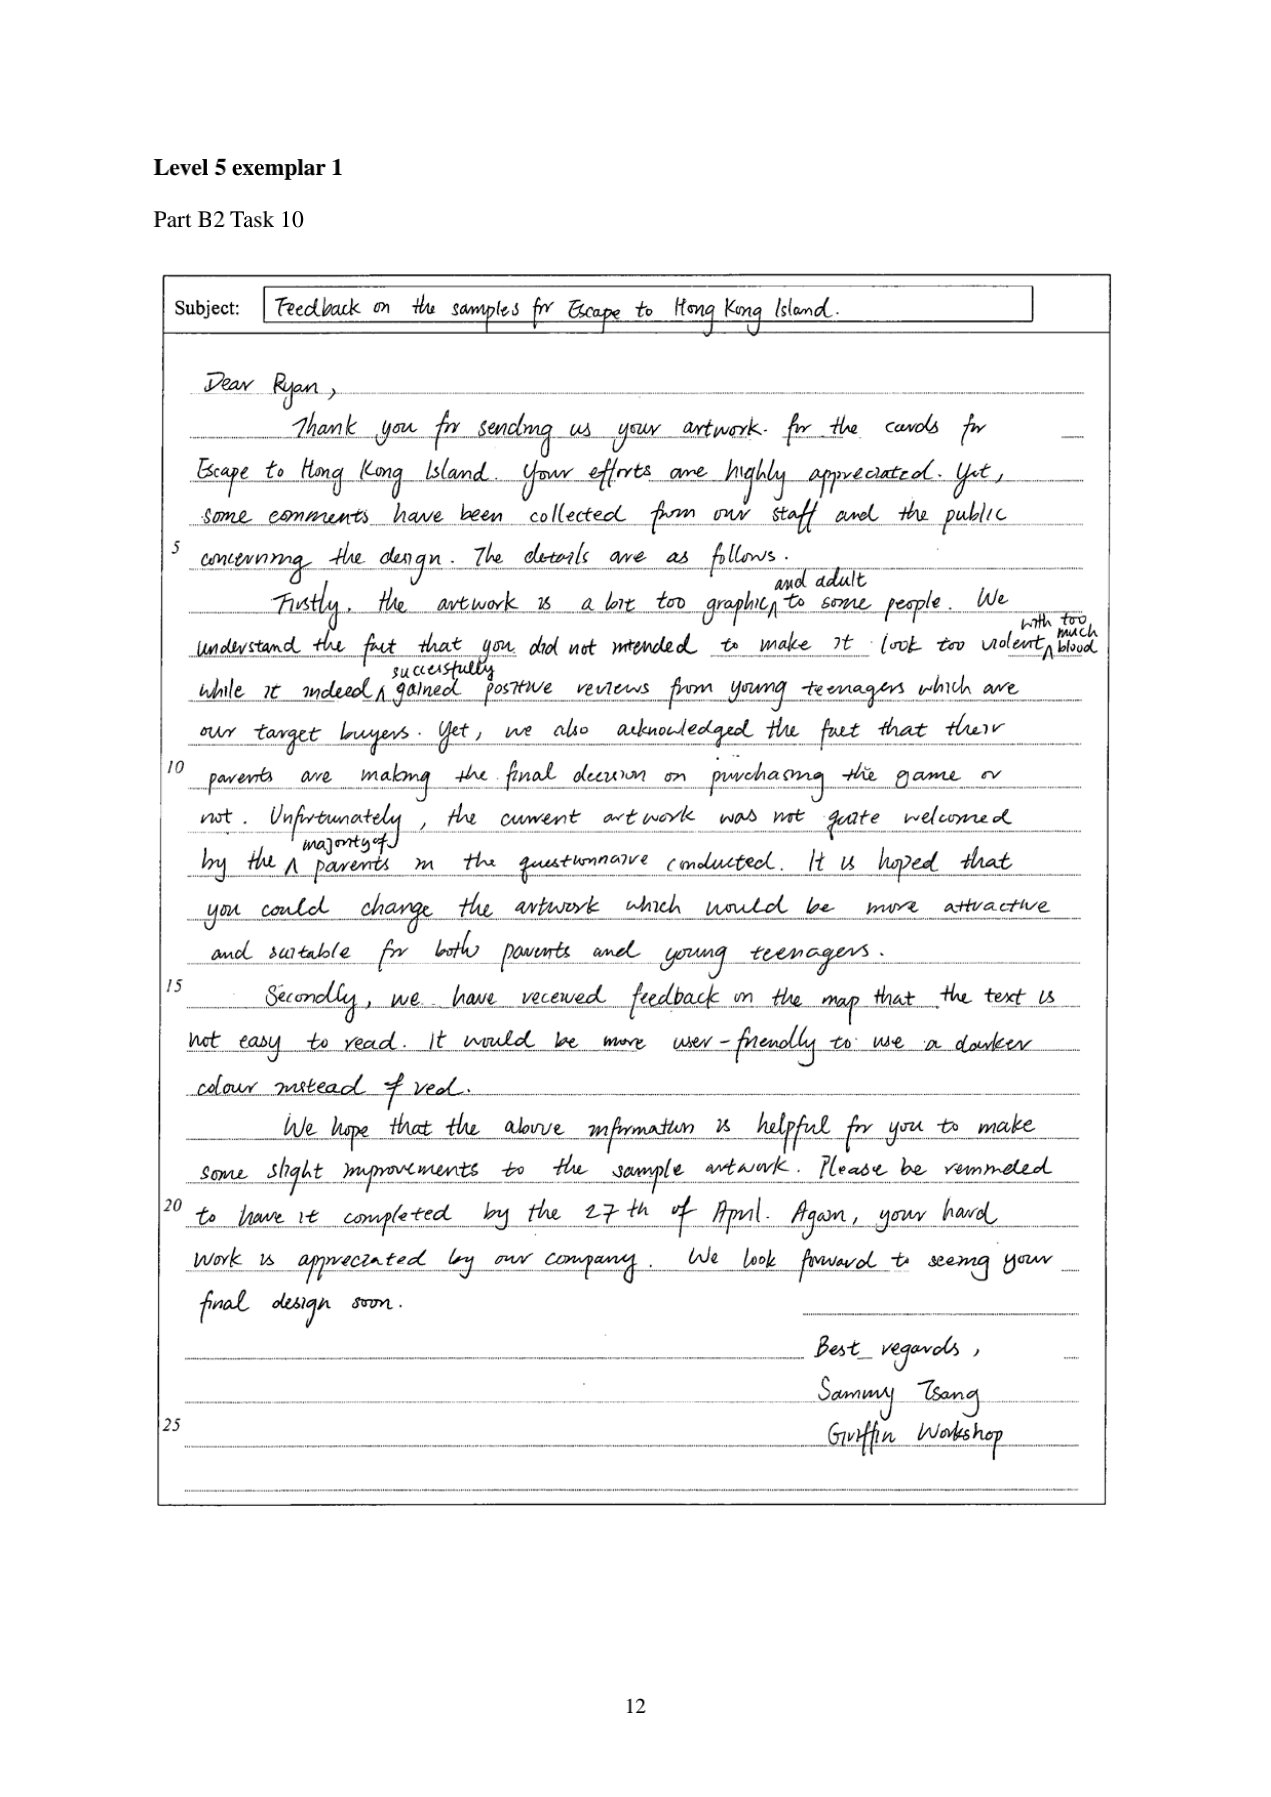 Level 5 exemplar 1
Part B2 Task 10
Subject: Feedback on the samples for Escape to Hong Kong Island.
Dear Ryan,
Thank you for sending us your artwork. for the cards for
Escape to Hong Kong Island. Your efforts are highly appreciated. Yet,
some comments have been collected from our staff and the public
5 concerning the design. The details are as follows.
and adult
Firstly, the artwork is a bit too graphic ∧ to some people. We
with too much
understand the fact that you did not intended to make it look too violent, ∧ blood
successfully
while it indeed ∧ gained positive reviews from young teenagers which are
our target buyers. Yet, we also acknowledged the fact that their
10 parents are making the final decision on purchasing the game or
not. Unfortunately, the current artwork was not quite welcomed
majority of
by the ∧ parents in the questionnaire conducted. It is hoped that
you could change the artwork which would be more attractive
and suitable for both parents and young teenagers.
15 Secondly, we have received feedback on the map that the text is
not easy to read. It would be more user-friendly to use a darker
colour instead of red.
We hope that the above information is helpful for you to make
some slight improvements to the sample artwork. Please be reminded
20 to have it completed by the 27th of April. Again, your hard
work is appreciated by our company. We look forward to seeing your
final design soon.
Best regards,
Sammy Tsang
25 Griffin Workshop
12